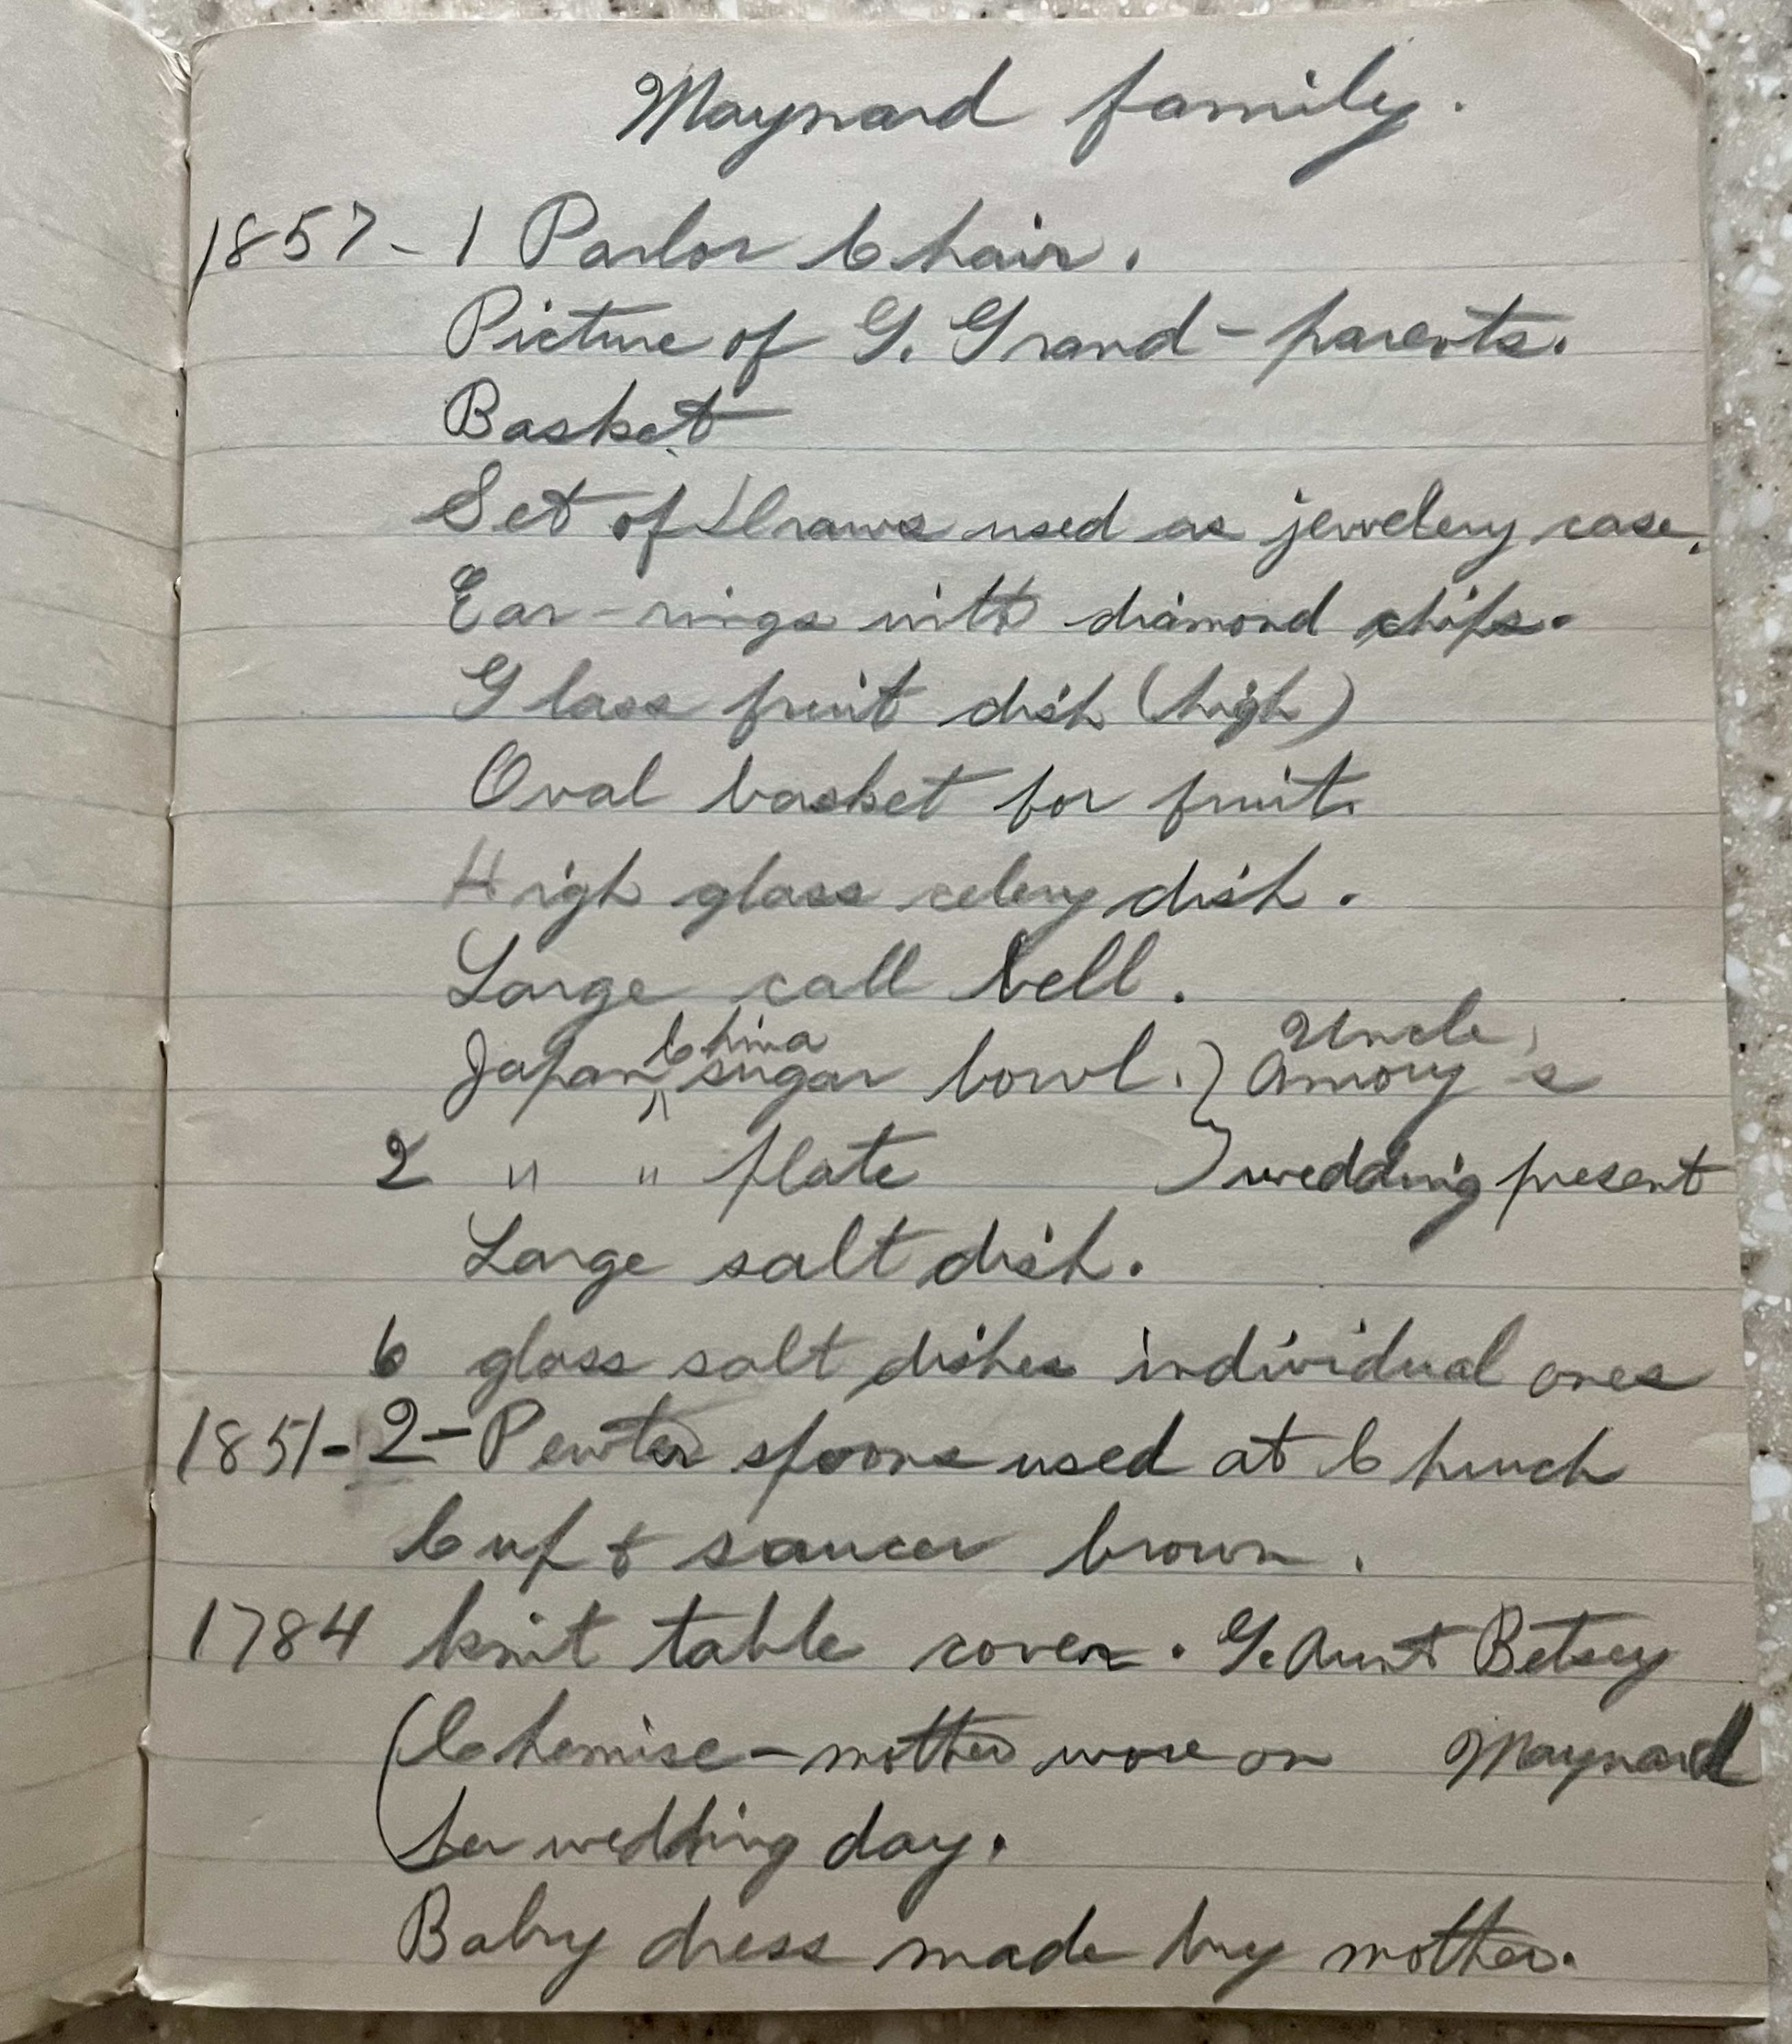 Maynard family.
1857 - 1 Parlor Chair.
Picture of G. Grand-parents.
Basket
Set of Draws used as jewelery case.
Ear-rings with diamond chips.
Glass fruit dish (high)
Oval basket for fruit.
High glass celery dish.
Large call bell.
Japan China sugar bowl. } Uncle Amory's
2 " " plate } wedding present
Large salt dish.
6 glass salt dishes individual ones
1851 - 2 - Pewter spoons used at Church
Cup & saucer brown.
1784 knit table cover. G. Aunt Betsey
(Chemise - mother wore on Maynard
her wedding day.
Baby dress made by mother.